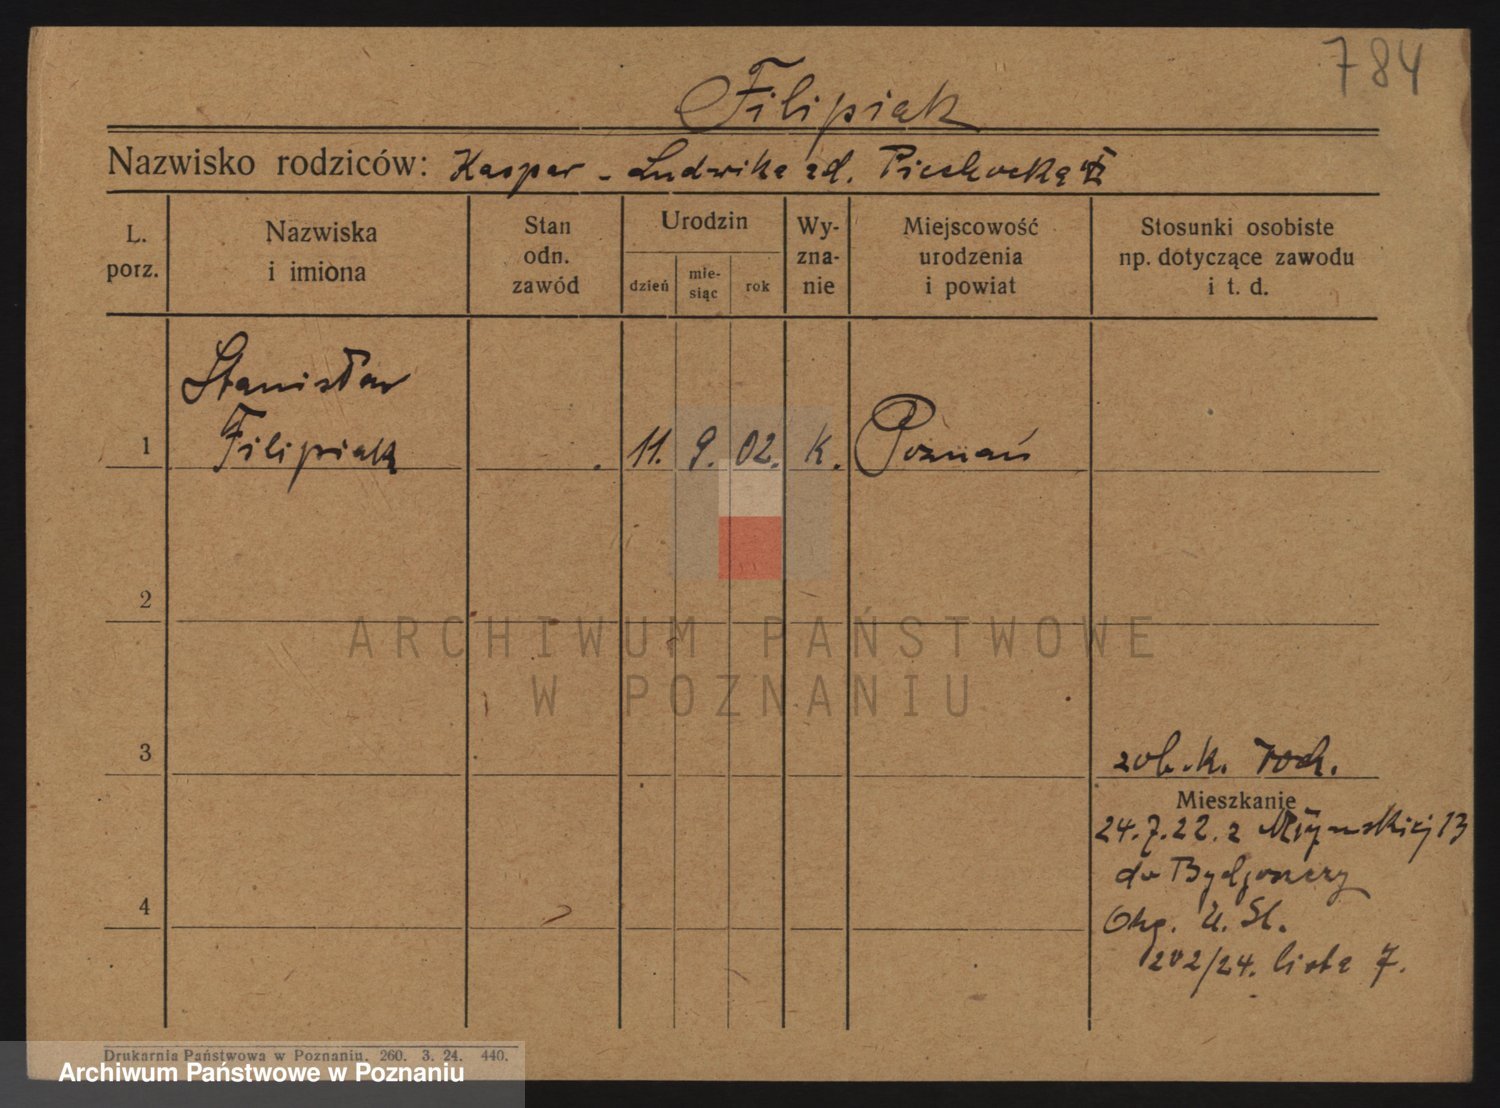 784
Filipiak
Nazwisko rodziców: Kasper - Ludwika zd. Piechocka
L. porz.
Nazwiska i imiona
Stan odn. zawód
Urodzin
dzień
mie-siąc
rok
Wy-zna-nie
Miejscowość urodzenia i powiat
Stosunki osobiste np. dotyczące zawodu i t. d.
Stanisław
1 Filipiak 11. 9. 02. k. Poznań
2
ARCHIWUM PAŃSTWOWE
W POZNANIU
3
zob. k. rodz.
Mieszkanie
24.7.22. z Młyńskiej 13
do Bydgoszczy
4
202/24. lista 7.
Drukarnia Państwowa w Poznaniu. 260. 3. 24. 440.
Archiwum Państwowe w Poznaniu